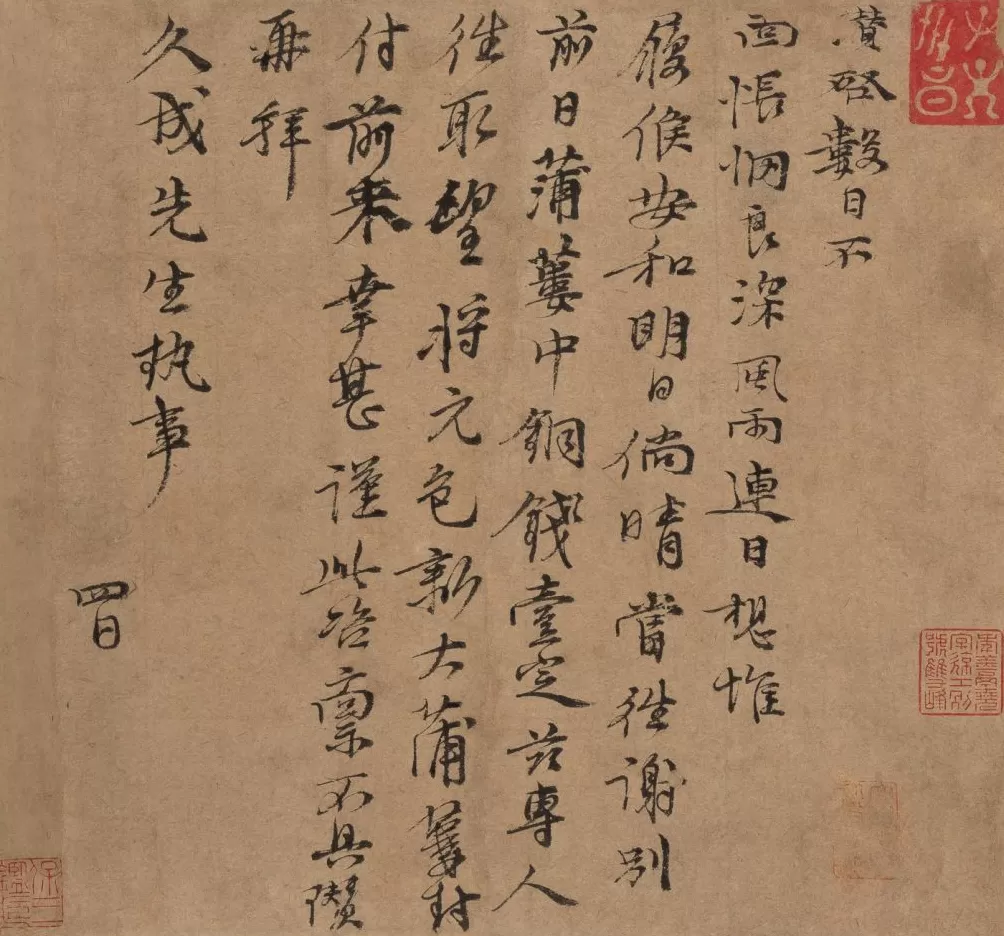 瓚啓數日不
面悵惘良深風雨連日想惟
履候安和明日倘晴當往謝別
前日蒲蔞中銅錢壹定茲專人
往取望將元包新大蒲蔞封
付前來幸甚謹此咨稟不具瓚
再拜
久成先生执事
四日